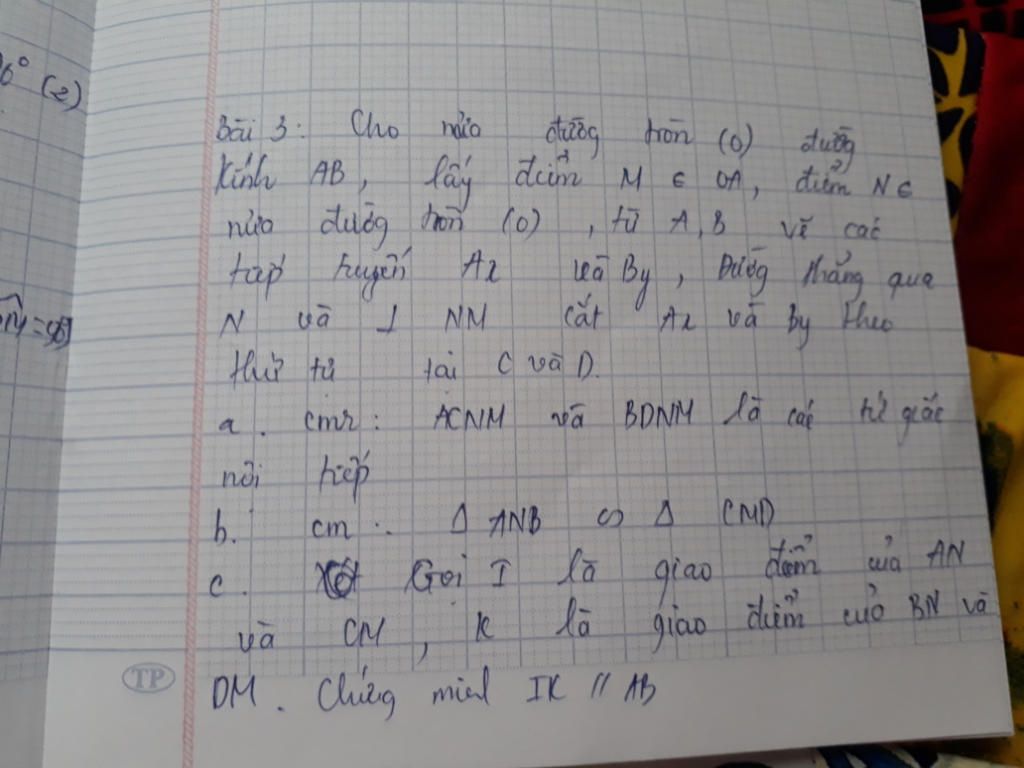 6° (2)
Bài 3: Cho nửa đường tròn (O) đường
kính AB, lấy điểm M ∈ OA, điểm N ∈
nửa đường tròn (O), từ A, B vẽ các
tiếp tuyến Ax và By, Đường thẳng qua
N và ⊥ NM cắt Ax và By theo
thứ tự tại C và D.
a. cmr: ACNM và BDNM là các tứ giác
nội tiếp
b. cm: Δ ANB ∽ Δ CMD
c. Gọi I là giao điểm của AN
và CM, K là giao điểm của BN và
DM. Chứng minh IK // AB
TP